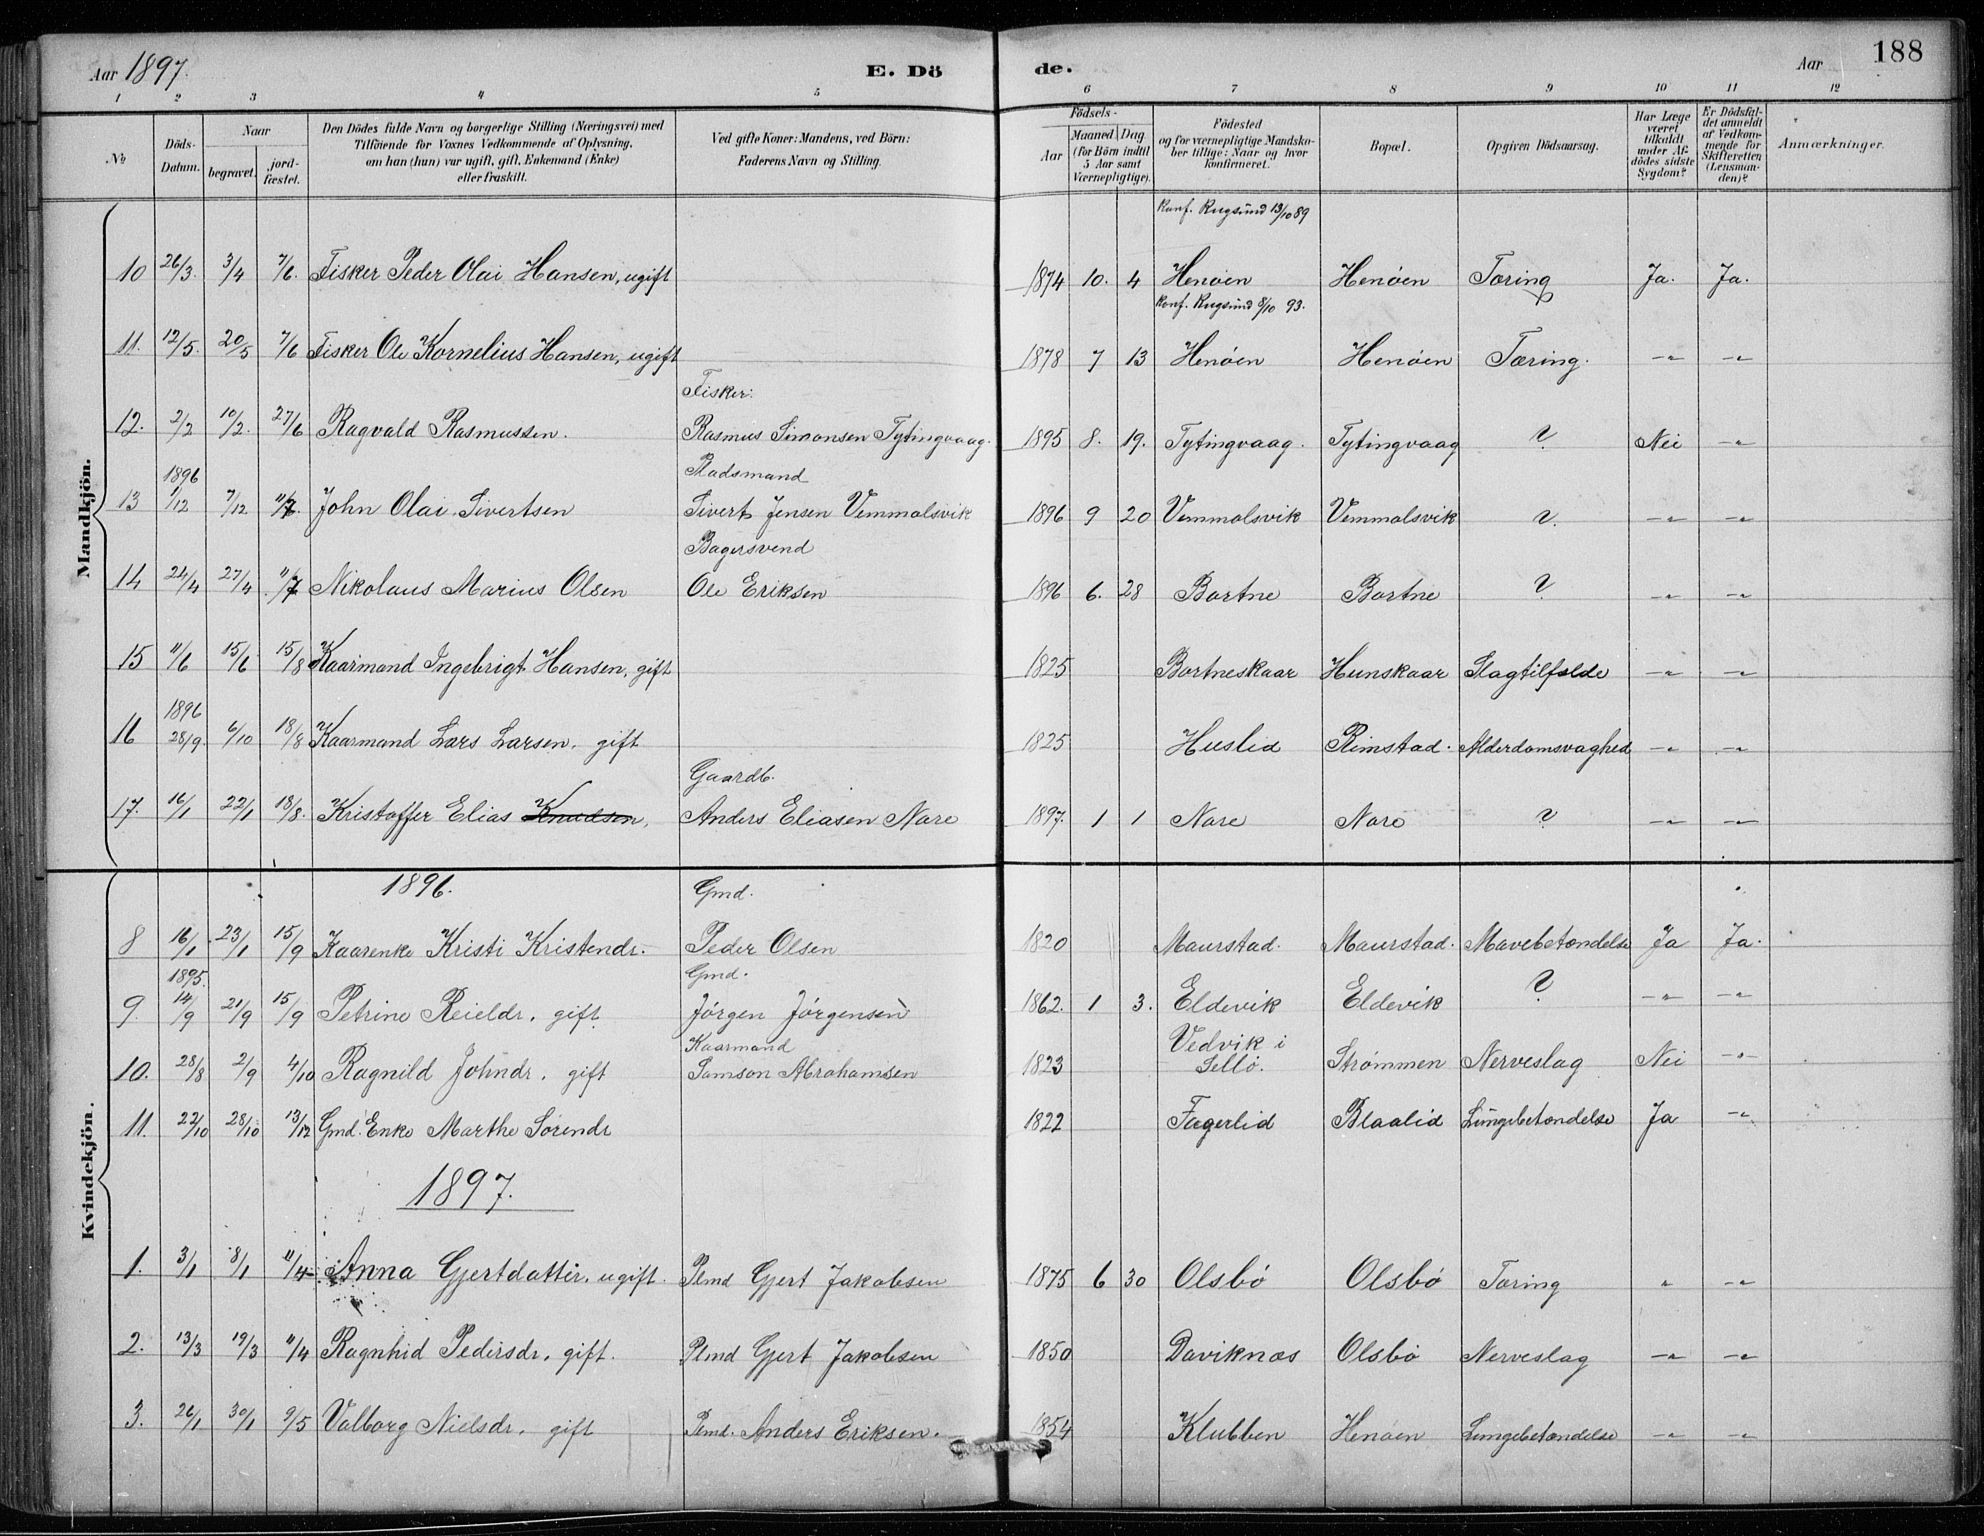 Aar 1897. E. Dö de. Aar 188
1 2 3 4 5 6 7 8 9 10 11 12
No
Döds-Datum.
Naar
begravet.
jord-fæstet.
Den Dödes fulde Navn og borgerlige Stilling (Næringsvei) med
Tilföiende for Voxnes Vedkommende af Oplysning,
om han (hun) var ugift, gift, Enkemand (Enke)
eller fraskilt.
Ved gifte Koner: Mandens, ved Börn:
Faderens Navn og Stilling.
Födsels-
Aar
Maaned Dag
(for Börn indtil
5 Aar samt
Værnepligtige).
Födested
og for værnepligtige Mandska-
ber tillige: Naar og hvor
konfirmeret.
Bopæl.
Opgiven Dödsaarsag.
Har Læge
været
tilkaldt
under Af-
dödes sidste
Sygdom?
Er Dödsfal-
det anmeldt
af Vedkom-
mende for
Skifteretten
(Lensman-
den)?
Anmærkninger.
Mandkjön.
Konf. Rugsund 13/10 89
10 26/3. 3/4 7/6. Fisker Peder Olai Hansen, ugift 1874 10. 4 Henöen Henöen Tæring Ja. Ja.
Konf. Rugsund 8/10 93.
11. 12/5. 20/5 7/6 Fisker Ole Kornelius Hansen, ugift 1878 7 13 Henöen Henöen Tæring. -"- -"-
Fisker:
12. 2/2 10/2. 27/6 Ragvald Rasmussen. Rasmus Simonsen Tytingvaag. 1895 8. 19. Tytingvaag. Tytingvaag ? Nei -"-
1896 Pladsmand
13 1/12 7/12 John Olai Sivertsen Sivert Jensen Vemmolsvik 1896 9 20 Vemmolsvik Vemmolsvik ? -"- -"-
Bagersvend
14 24/4 27/4 11/7 Nikolaus Marius Olsen Ole Eriksen 1896 6. 28 Bortne Bortne ? -"- -"-
15 11/6 15/6 15/8 Kaarmand Ingebrigt Hansen, gift 1825 Bortneskaar Hunskaar Slagtilfælde -"- -"-
1896
16 28/9. 6/10 18/8 Kaarmand Lars Larsen. gift 1825 Huslid Rimstad. Alderdomsvaghed -"- -"-
Gaardb.
17. 16/1 22/1 18/8. Kristoffer Elias Knudsen, Anders Eliasen Nore 1897. 1 1 Nore Nore ? -"- -"-
Kvindekjön.
1896. Gmd.
8 16/1 23/1 15/9 Kaarenke Kristi Kristendr. Peder Olsen 1820 Maurstad. Maurstad. Mavebetændelse Ja Ja.
1895. Gmd.
9. 14/9 21/9 15/9 Petrine Reieldr. gift Jörgen Jörgensen 1862. 1 3. Eldevik Eldevik ? -"- -"-
Kaarmand Vedvik i
10. 28/8 2/9 4/10 Ragnild Johndr. gift Samson Abrahamsen 1823 Sellö. Strömmen Nerveslag Nei -"-
11. 22/10 28/10 13/12 Gmd. Enke Marthe Sörendr 1822 Fagerlid Blaalid Lungebetændelse Ja -"-
1897.
1. 3/1 8/1 11/4 Anna Gjertdatter, ugift. Plmd Gjert Jakobsen 1875 6 30 Olsbö Olsbö Tæring " -"-
2. 13/3 19/3 11/4 Ragnhid Pedersdr. gift. Plmd Gjert Jakobsen 1850 Daviknæs Olsbö Nerveslag -"- -"-
3. 26/1 30/1 9/5 Valborg Nielsdr. gift Plmd. Anders Eriksen. 1854 Klubben Henöen Lungebetændelse -"- -"-